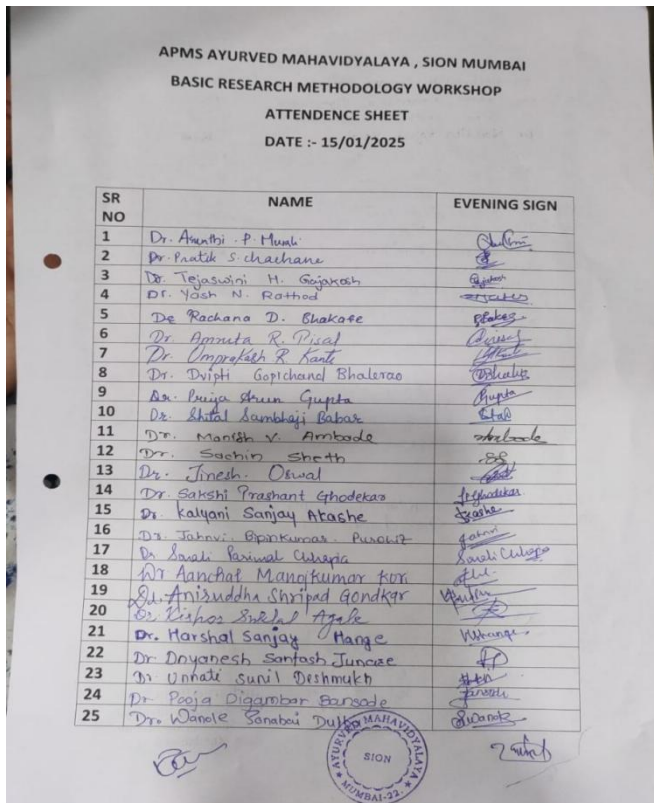 APMS AYURVED MAHAVIDYALAYA , SION MUMBAI
BASIC RESEARCH METHODOLOGY WORKSHOP
ATTENDENCE SHEET
DATE :- 15/01/2025
SR NO NAME EVENING SIGN
1 Dr. P.
2 Dr. Pratik S. Chachane
3 Dr. Tejaswini H. Gajakosh
4 Dr. Yash N. Rathod
5 Dr Rachana D. Bhakare
6 Dr. Amruta R. Pisal
7 Dr. Omprakash R Kante
8 Dr. Dvipti Gopichand Bhalerao
9 Dr. Priya Arun Gupta Gupta
10 Dr. Shital Sambhaji Babar
11 Dr. Manish V. Ambade Ambade
12 Dr. Sachin Sheth
13 Dr. Jinesh. Oswal
14 Dr. Sakshi Prashant Ghodekar
15 Dr. Kalyani Sanjay Akashe
16 Dr. Jahnvi. Bipinkumar. Purohit
17 Dr Sarali Parimal
18 Dr Aanchal Mangkumar Kori
19 Dr. Aniruddha Shripad Gondkar
20 Dr. Kishor Agale
21 Dr. Harshal Sanjay Mange
22 Dr Dnyanesh Santosh Juncare
23 Dr Unnati Sunil Deshmukh
24 Dr Pooja Digambar Bansode
25 Dr. Wanole Sonabai
AYURVED MAHAVIDYALAYA
SION
MUMBAI-22.